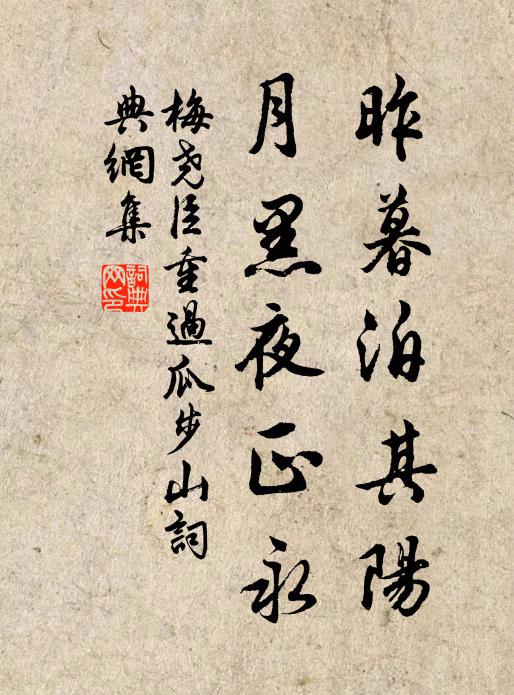 昨暮泊其陽
月黑夜正永
梅堯臣重過瓜步山詞
典網集
詞典網印